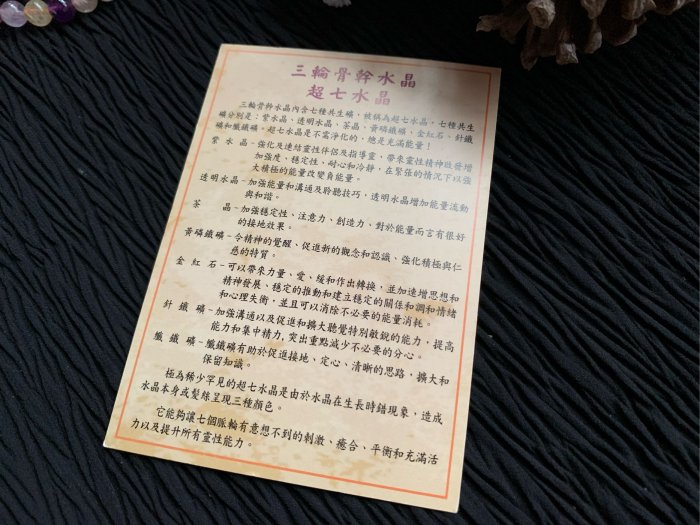 三輪骨幹水晶
超七水晶
三輪骨幹水晶內含七種共生礦，被稱為超七水晶，七種共生
礦分別是：紫水晶、透明水晶、茶晶、黃磷鐵礦、金紅石、針鐵
礦和纖鐵礦。超七水晶是不需淨化的，總是充滿能量！
紫水晶-強化及連結靈性伴侶及指導靈，帶來靈性精神啟發增
加強度、穩定性、耐心和冷靜，在緊張的情況下以強
大積極的能量改變負能量。
透明水晶-加強能量和溝通及聆聽技巧，透明水晶增加能量流動
與和諧。
茶晶-加強穩定性、注意力、創造力、對於能量而言有很好
的接地效果。
黃磷鐵礦-令精神的覺醒、促進新的觀念和認識、強化積極與仁
慈的特質。
金紅石-可以帶來力量、愛、緩和作出轉換，並加速增思想和
精神發展、穩定的推動和建立穩定的關係和調和情緒
和心理失衡，並且可以消除不必要的能量消耗。
針鐵礦-加強溝通以及促進和擴大聽覺特別敏銳的能力，提高
能力和集中精力,突出重點減少不必要的分心。
纖鐵礦-纖鐵礦有助於促進接地、定心、清晰的思路，擴大和
保留知識。
極為稀少罕見的超七水晶是由於水晶在生長時錯現象，造成
水晶本身或髮絲呈現三種顏色。
它能夠讓七個脈輪有意想不到的刺激、癒合、平衡和充滿活
力以及提升所有靈性能力。